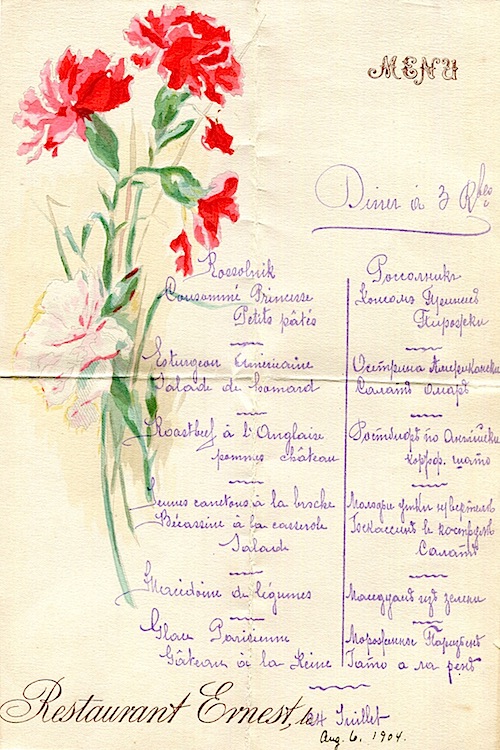 MENU
Diner à 3 Rbls
Rossolnik
Consommé Princesse
Petits pâtés
Esturgeon Américaine
Salade de homard
Roastbeef à l'Anglaise
pommes château
Jeunes canetons à la broche
Bécassine à la casserole
Salade
Macédoine de légumes
Glace Parisienne
Gâteau à la Reine
Россолникъ
Консомэ Принцес
Пирожки
Осетрина Американски
Салатъ омаръ
Ростбифъ по Английски
карф. шато
Молодые утки
Бекассинъ в кострулѣ
Салатъ
Маседуанъ изъ зелени
Мороженное
Гато а ла ренъ
Restaurant Ernest, le 24 Juillet
Aug. 6, 1904.